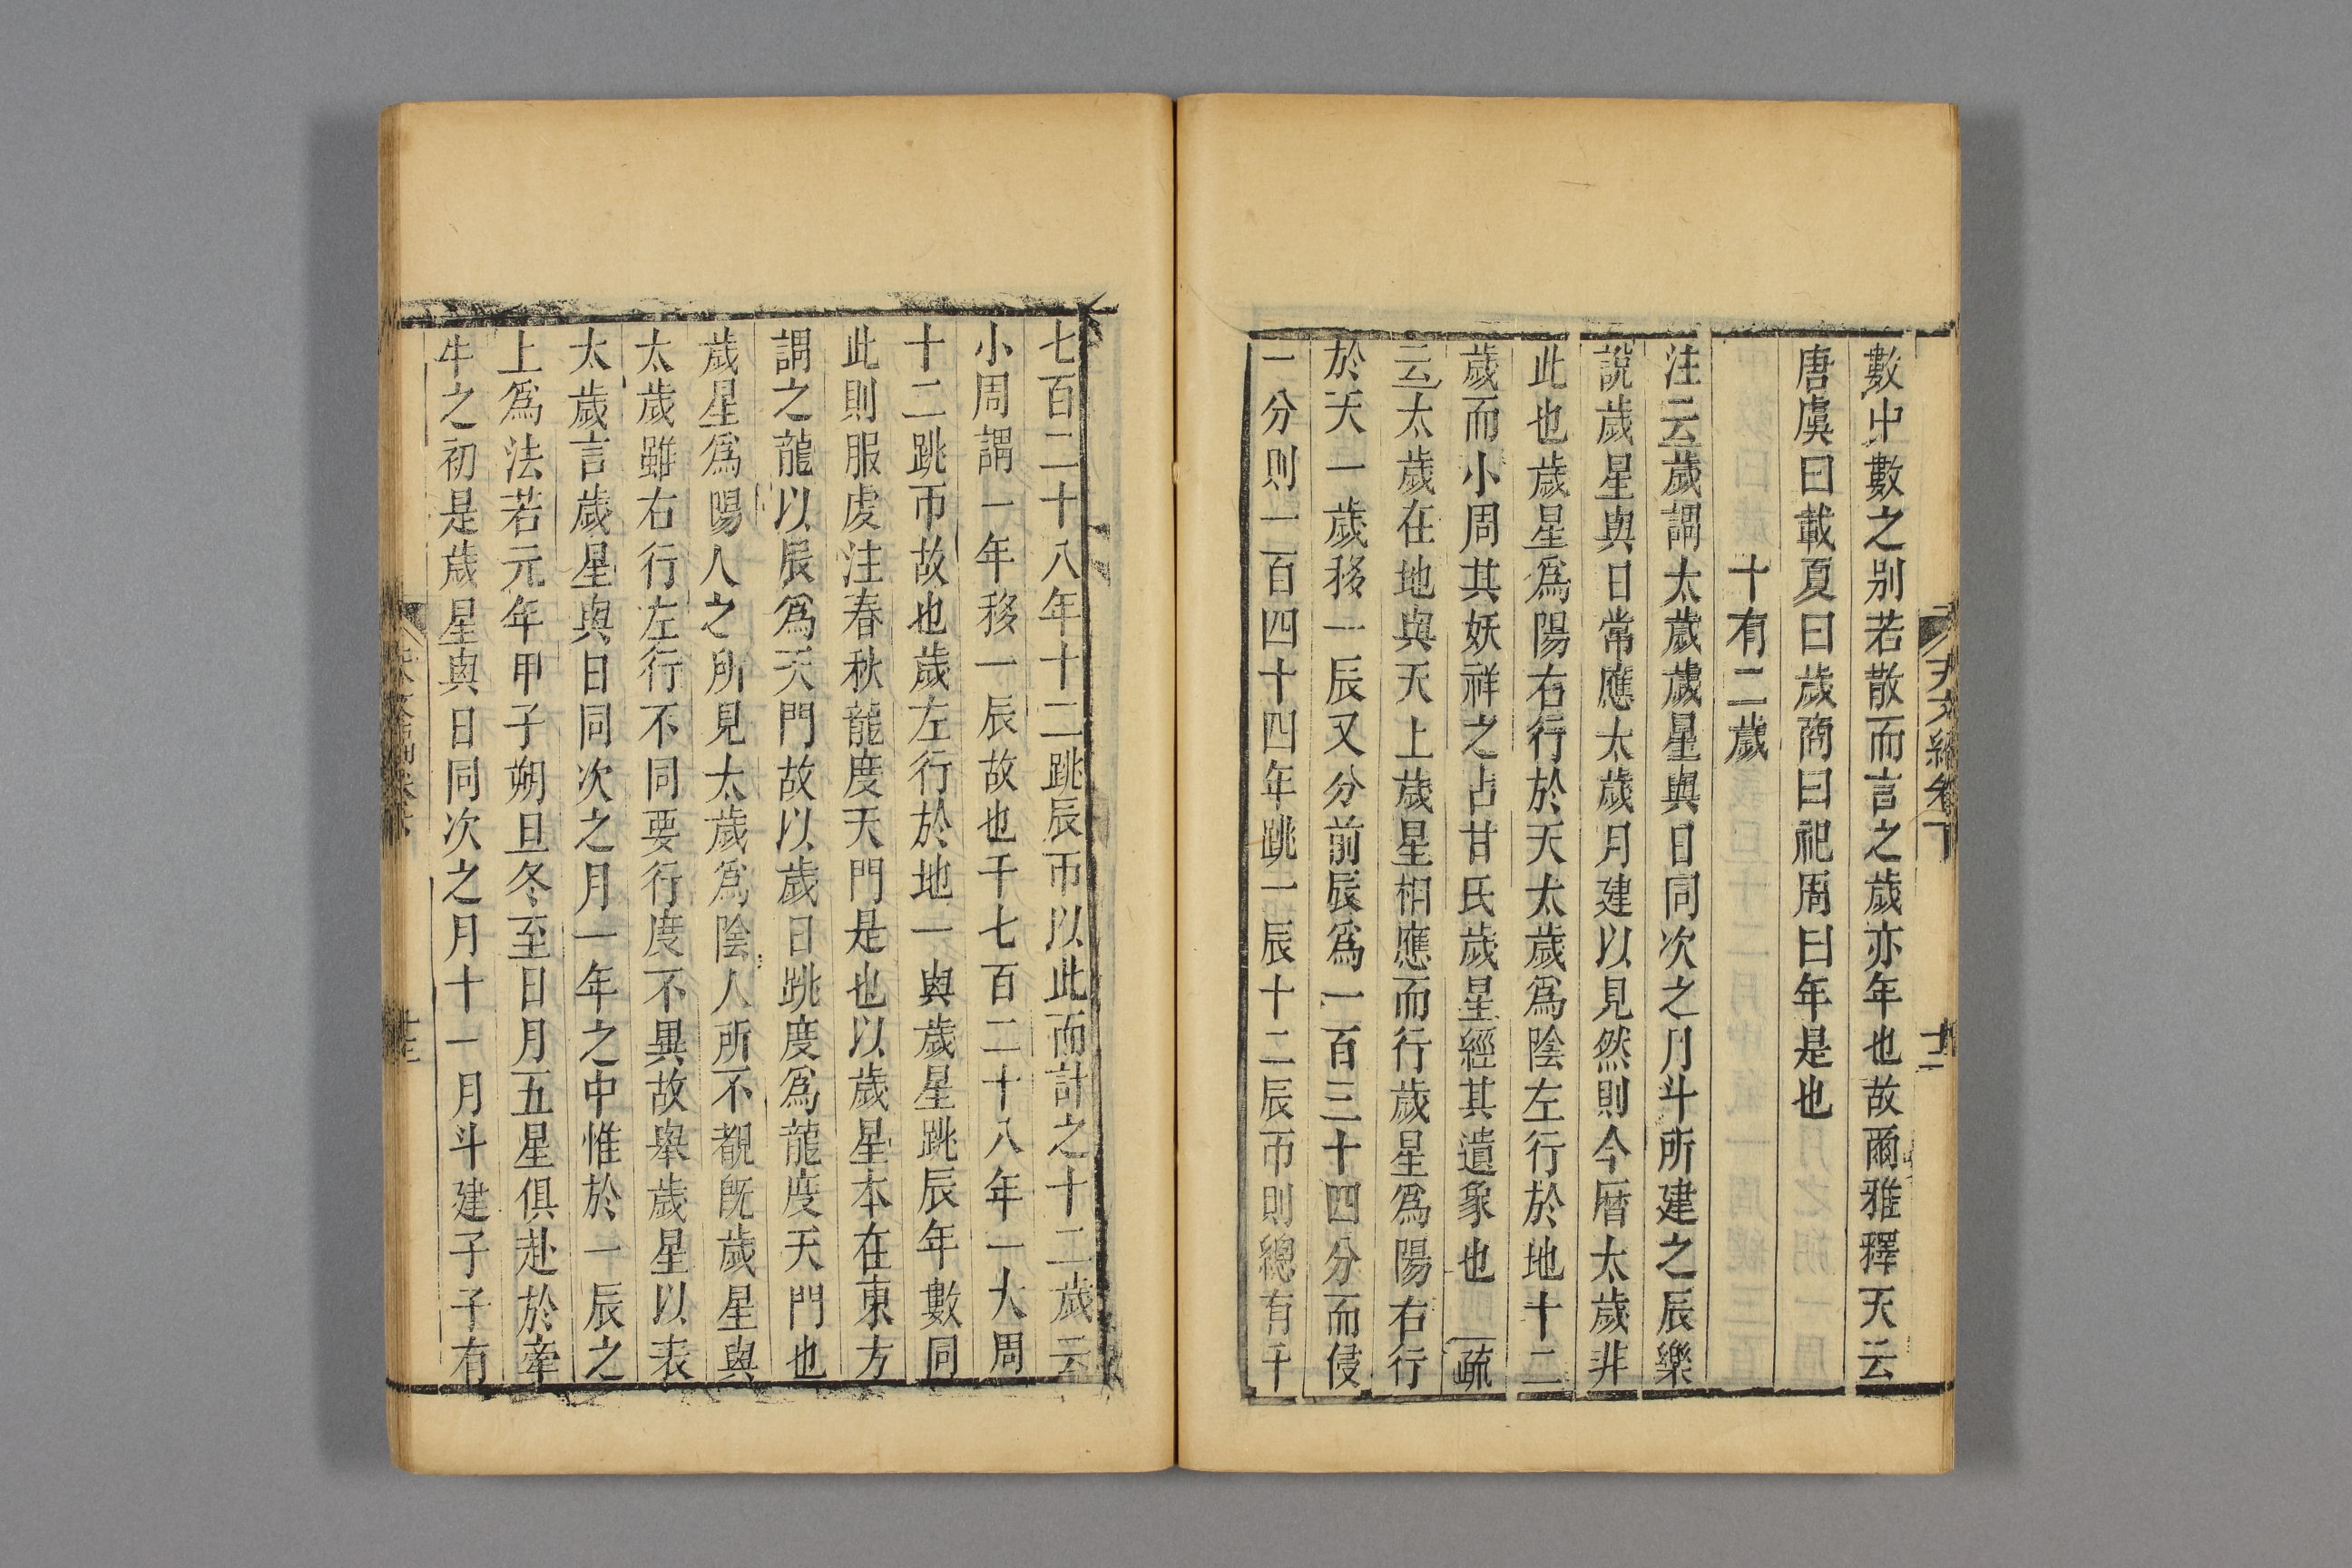 數中數之别若散而言之歲亦年也故爾雅釋天云
唐虞曰載夏曰歲商曰祀周曰年是也
十有二歲
注云歲謂太歲歲星與日同次之月斗所建之辰樂
說歲星與日常應太歲月建以見然則今曆太歲非
此也歲星爲陽右行於天太歲爲陰左行於地十二
歲而小周其妖祥之占甘氏歲星經其遺象也 疏
云太歲在地與天上歲星相應而行歲星爲陽右行
於天一歲移一辰又分前辰爲一百三十四分而侵
一分則一百四十四年跳一辰十二辰帀則總有千
七百二十八年十二跳辰帀以此而計之十二歲云
小周謂一年移一辰故也千七百二十八年一大周
十二跳帀故也歲左行於地一與歲星跳辰年數同
此則服虔注春秋龍度天門是也以歲星本在東方
謂之龍以辰爲天門故以歲日跳度爲龍度天門也
歲星爲陽人之所見太歲爲陰人所不覩旣歲星與
太歲雖右行左行不同要行度不異故舉歲星以表
太歲言歲星與日同次之月一年之中惟於一辰之
上爲法若元年甲子朔旦冬至日月五星俱赴於牽
牛之初是歲星與日同次之月十一月斗建子子有